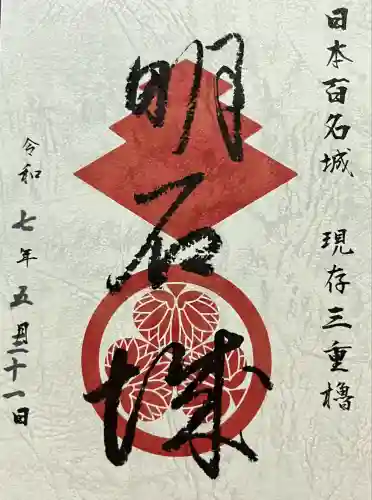 日本百名城 現存三重櫓
明石城
令和七年五月二十一日